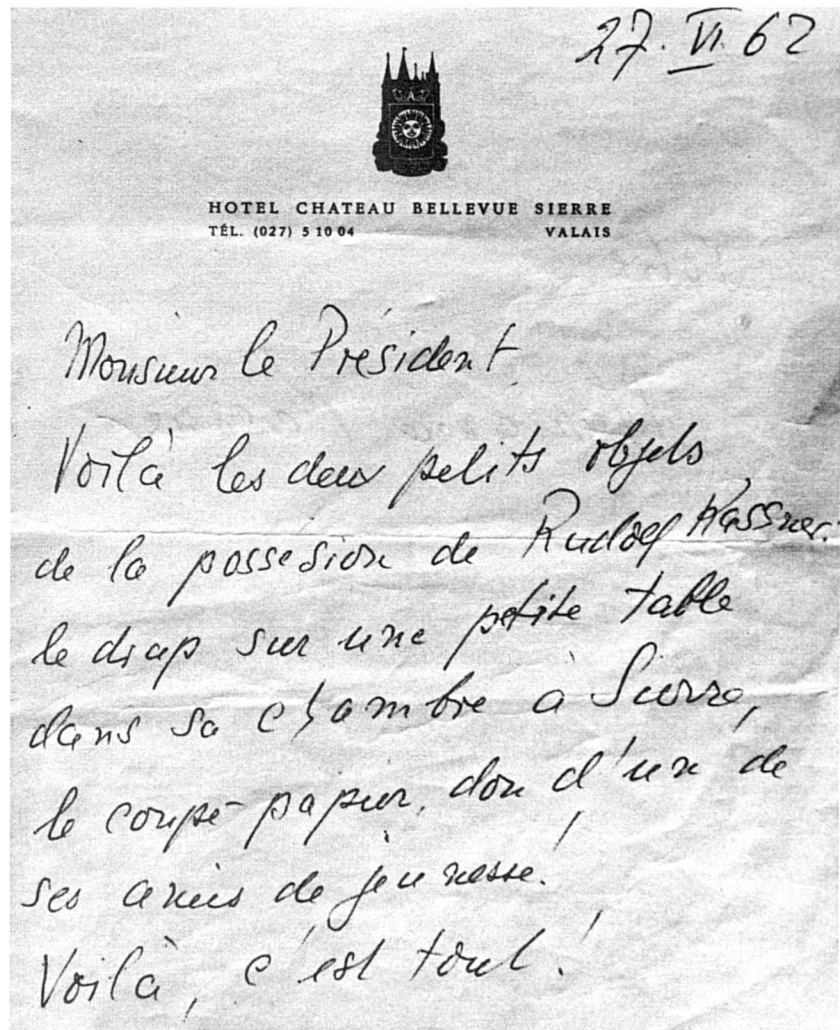 27. VI. 62
A
HOTEL CHATEAU BELLEVUE SIERRE
TÉL. (027) 5 10 04 VALAIS
Monsieur le Président,
Voilà les deux petits objets
de la possesion de Rudolf Kassner:
le drap sur une petite table
dans sa chambre à Sierre,
le coupe-papier, don d'un de
ses amis de jeunesse.
Voilà, c'est tout!